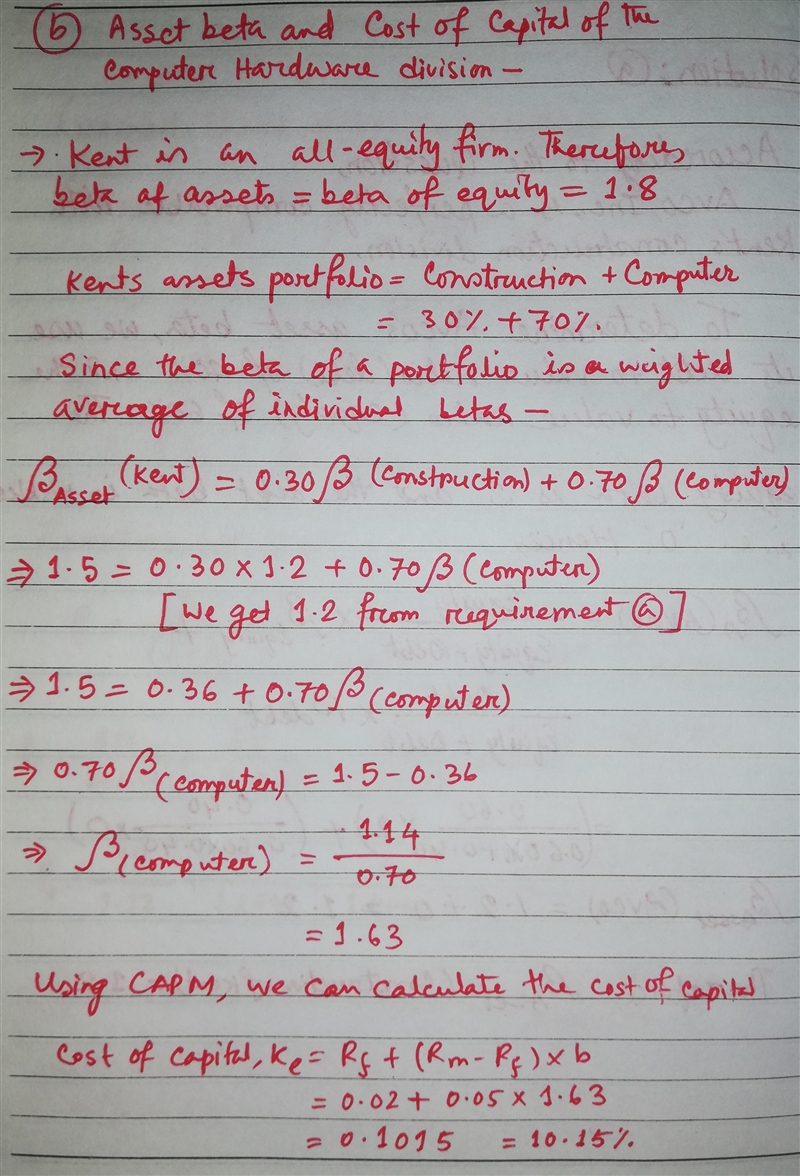 (b) Asset beta and Cost of Capital of the
Computer Hardware division —
→ Kent is an all-equity firm. Therefore,
beta of assets = beta of equity = 1.8
Kents assets portfolio = Construction + Computer
= 30% + 70%.
Since the beta of a portfolio is a weighted
average of individual betas —
β Asset (Kent) = 0.30 β (Construction) + 0.70 β (Computer)
⇒ 1.5 = 0.30 × 1.2 + 0.70 β (Computer)
[We get 1.2 from requirement (a)]
⇒ 1.5 = 0.36 + 0.70 β (Computer)
⇒ 0.70 β (Computer) = 1.5 - 0.36
⇒ β (Computer) = 1.14 / 0.70
= 1.63
Using CAPM, we can calculate the cost of capital
Cost of capital, Ke = Rf + (Rm - Rf) × b
= 0.02 + 0.05 × 1.63
= 0.1015 = 10.15%